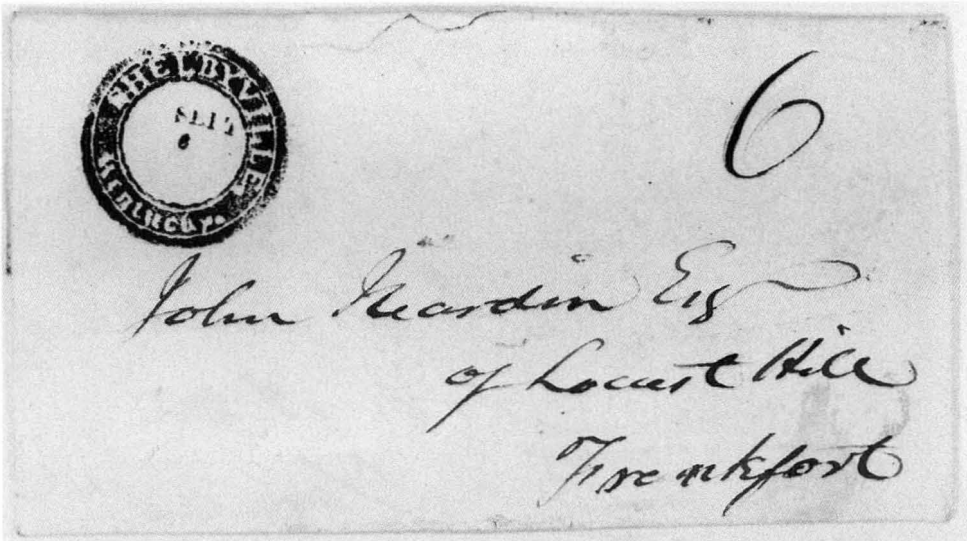 SHELBYVILLE
KENTUCKY.
SEP
6
6
John Heardin Esq
of Locust Hill
Frankfort